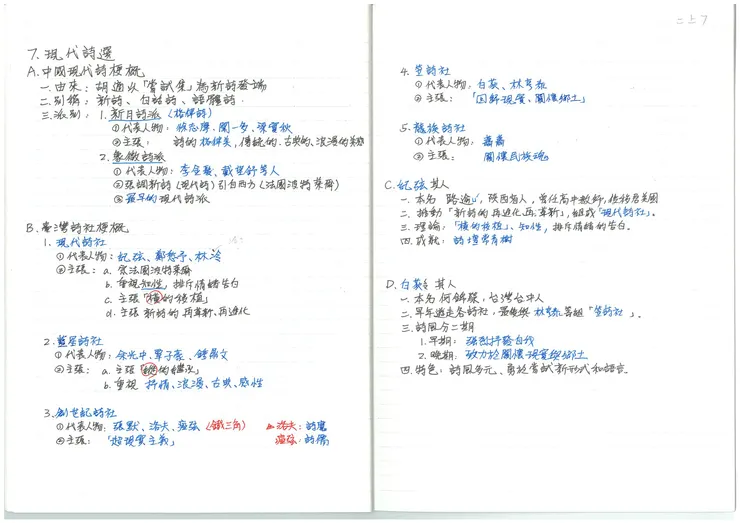 二上7
7. 現代詩選
A. 中國現代詩梗概
一. 由來：胡適以「嘗試集」為新詩發端
二. 別稱：新詩、白話詩、語體詩
三. 派別：1. 新月詩派（格律詩）
①代表人物：徐志摩、聞一多、梁實秋
②主張：詩的格律美，傳統的、古典的、浪漫的美感
2. 象徵詩派
①代表人物：李金髮、戴望舒等人
②強調新詩（現代詩）引自西方（法國波特萊爾）
③最早的現代詩派
B. 臺灣詩社梗概
1. 現代詩社
①代表人物：紀弦、鄭愁予、林泠
②主張：a. 宗法國波特萊爾
b. 重視知性，排斥情緒告白
c. 主張「橫的移植」
d. 主張新詩的再革新、再進化
2. 藍星詩社
①代表人物：余光中、覃子豪、鍾鼎文
②主張：a. 主張「縱的繼承」
b. 重視 抒情、浪漫、古典、感性
3. 創世紀詩社
①代表人物：張默、洛夫、瘂弦（鐵三角） 洛夫：詩魔
②主張：「超現實主義」 瘂弦：詩儒
4. 笠詩社
①代表人物：白萩、林亨泰
②主張：「回歸現實、關懷鄉土」
5. 龍族詩社
①代表人物：
②主張：關懷民族魂
C. 紀弦其人
一. 本名 路逾，陝西省人，曾任高中教師，後移居美國
二. 推動「新詩的再進化再革新」，組成「現代詩社」。
三. 理論：「橫的移植」、知性，排斥情緒的告白。
四. 成就：詩壇常青樹
D. 白萩其人
一. 本名 何錦榮，台灣台中人
二. 早年遊走各詩社，最後與 林亨泰等組「笠詩社」。
三. 詩風分二期
1. 早期：強烈抒發自我
2. 晚期：致力於關懷現實與鄉土
四. 特色：詩風多元、勇於嘗試新形式和語言。